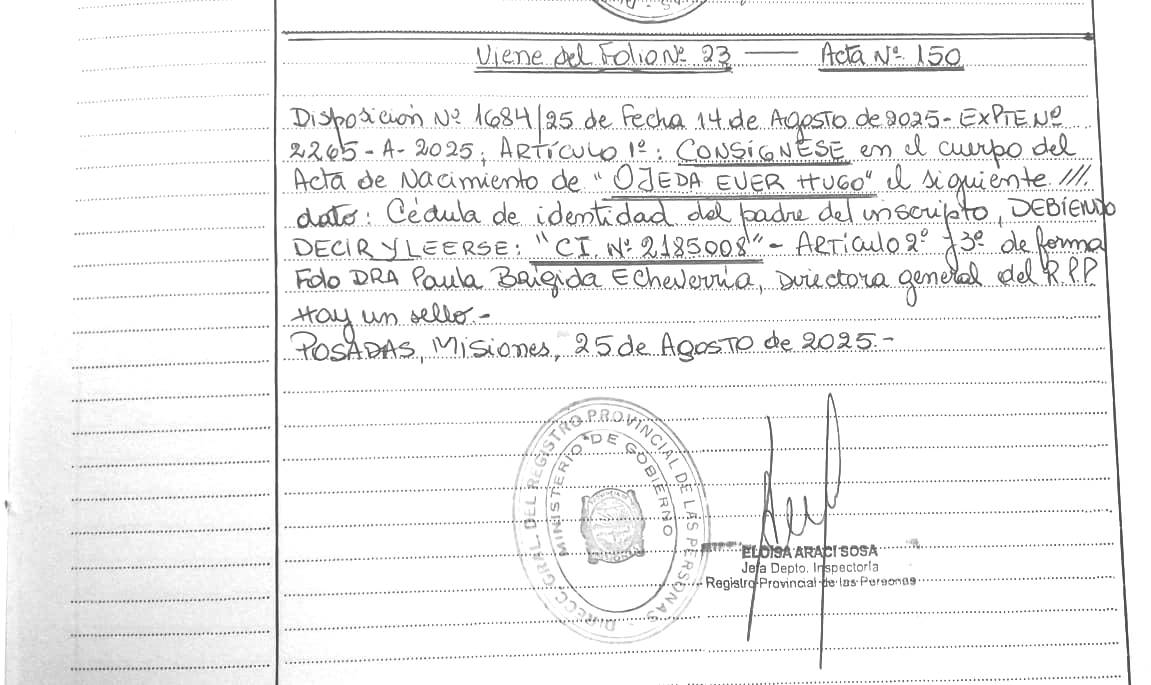 Viene del Folio Nº 23 —— Acta Nº 150
Disposición Nº 1684/25 de Fecha 14 de Agosto de 2025- EXPTE Nº
2265-A-2025; ARTÍCULO 1º: CONSÍGNESE en el cuerpo del
Acta de Nacimiento de "OJEDA EVER HUGO" el siguiente ///.
dato: Cédula de identidad del padre del inscripto, DEBIENDO
DECIR Y LEERSE: "C.I. Nº 2185008"- ARTÍCULO 2º y 3º de forma
Fdo DRA Paula Brígida Echeverría, Directora general del R.P.P.
Hay un sello.-
POSADAS, Misiones, 25 de Agosto de 2025.-
DIRECC. GRAL. DEL REGISTRO PROVINCIAL DE LAS PERSONAS
MINISTERIO DE GOBIERNO
ELOISA ARACI SOSA
Jefa Depto. Inspectoría
Registro Provincial de las Personas